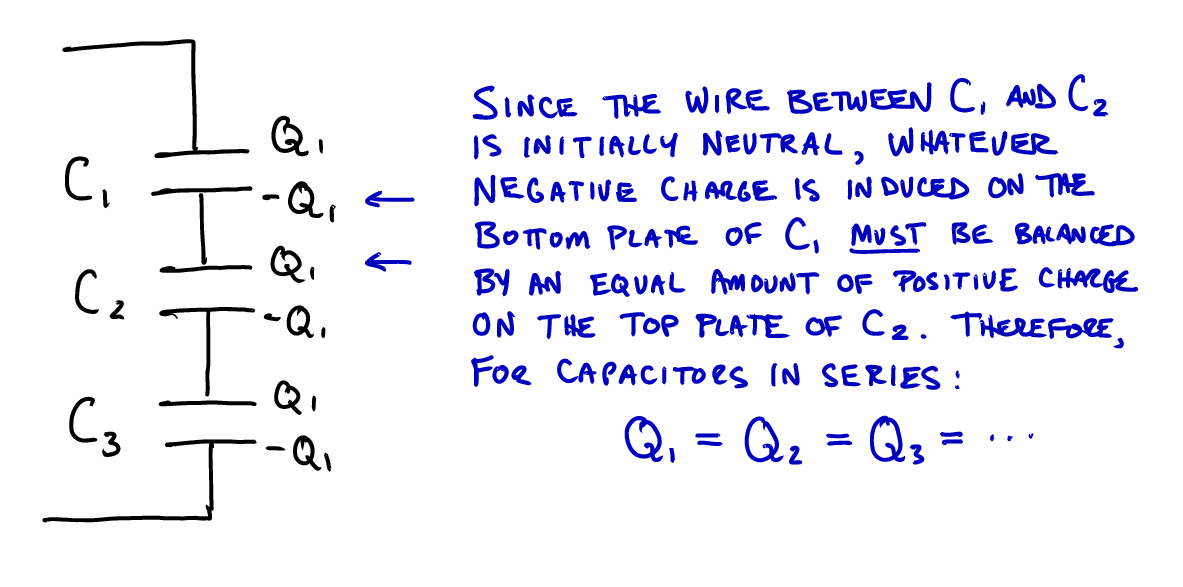 C₁
Q₁
-Q₁ ←
C₂
Q₁ ←
-Q₁
C₃
Q₁
-Q₁
SINCE THE WIRE BETWEEN C₁ AND C₂
IS INITIALLY NEUTRAL, WHATEVER
NEGATIVE CHARGE IS INDUCED ON THE
BOTTOM PLATE OF C₁ MUST BE BALANCED
BY AN EQUAL AMOUNT OF POSITIVE CHARGE
ON THE TOP PLATE OF C₂. THEREFORE,
FOR CAPACITORS IN SERIES:
Q₁ = Q₂ = Q₃ = ...